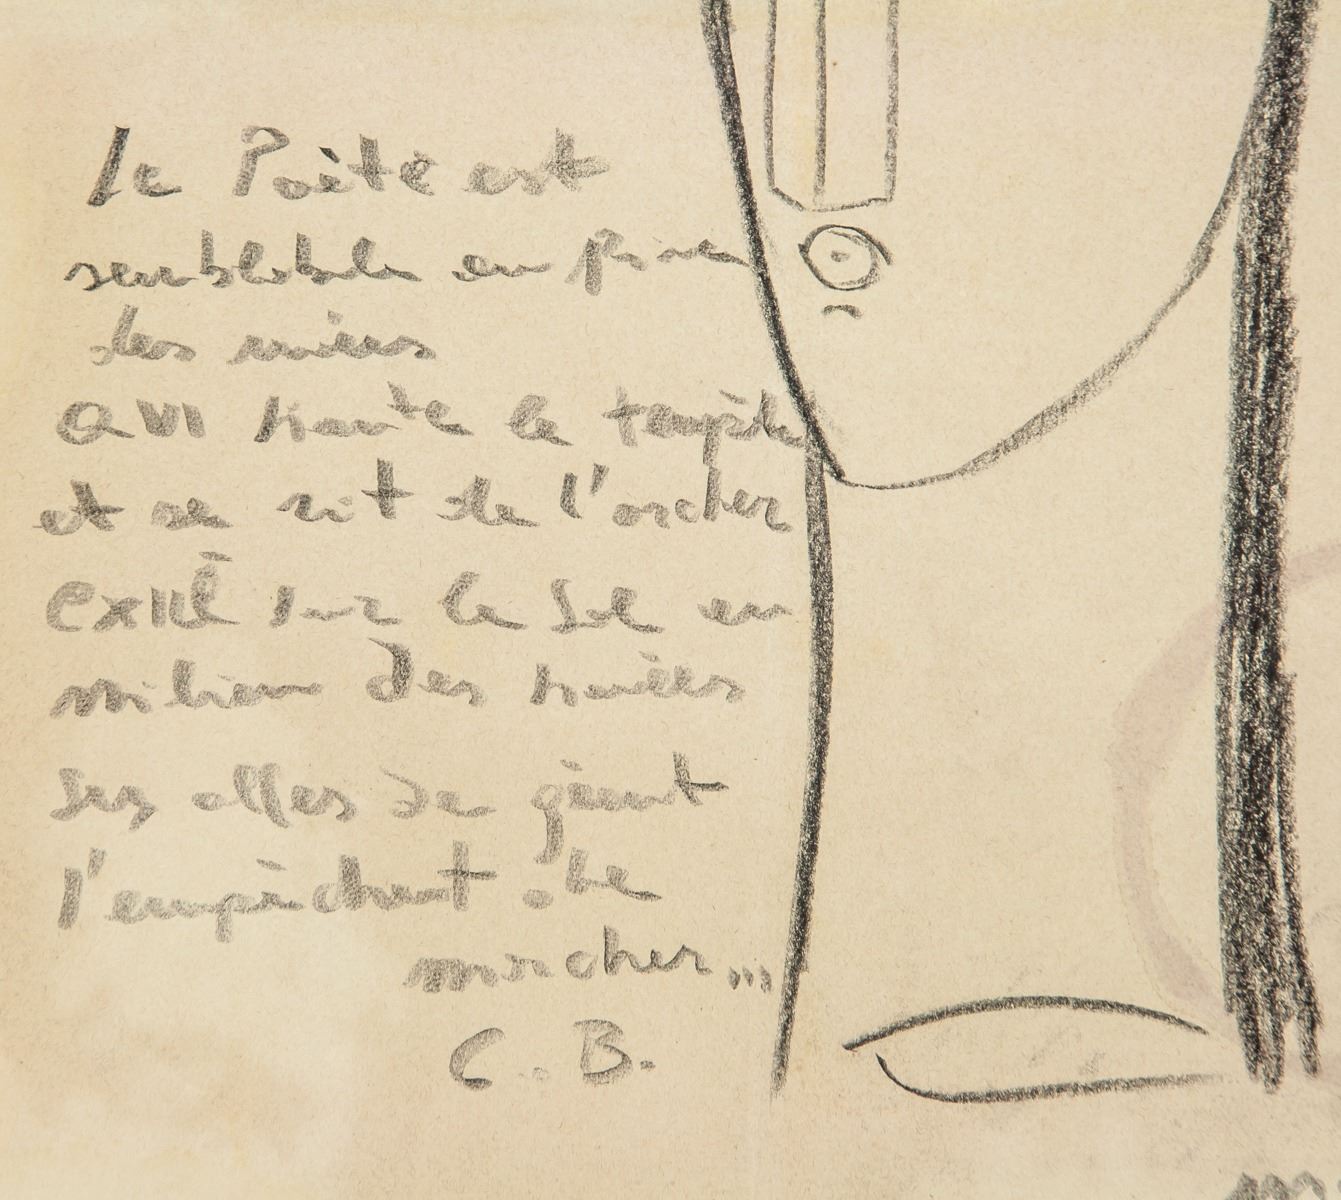 Le Poète est
semblable au prince
des nuées
QUI hante la tempête
et se rit de l'archer
EXILÉ sur le sol au
milieu des huées
Ses ailes de géant
l'empêchent de
marcher...
C. B.